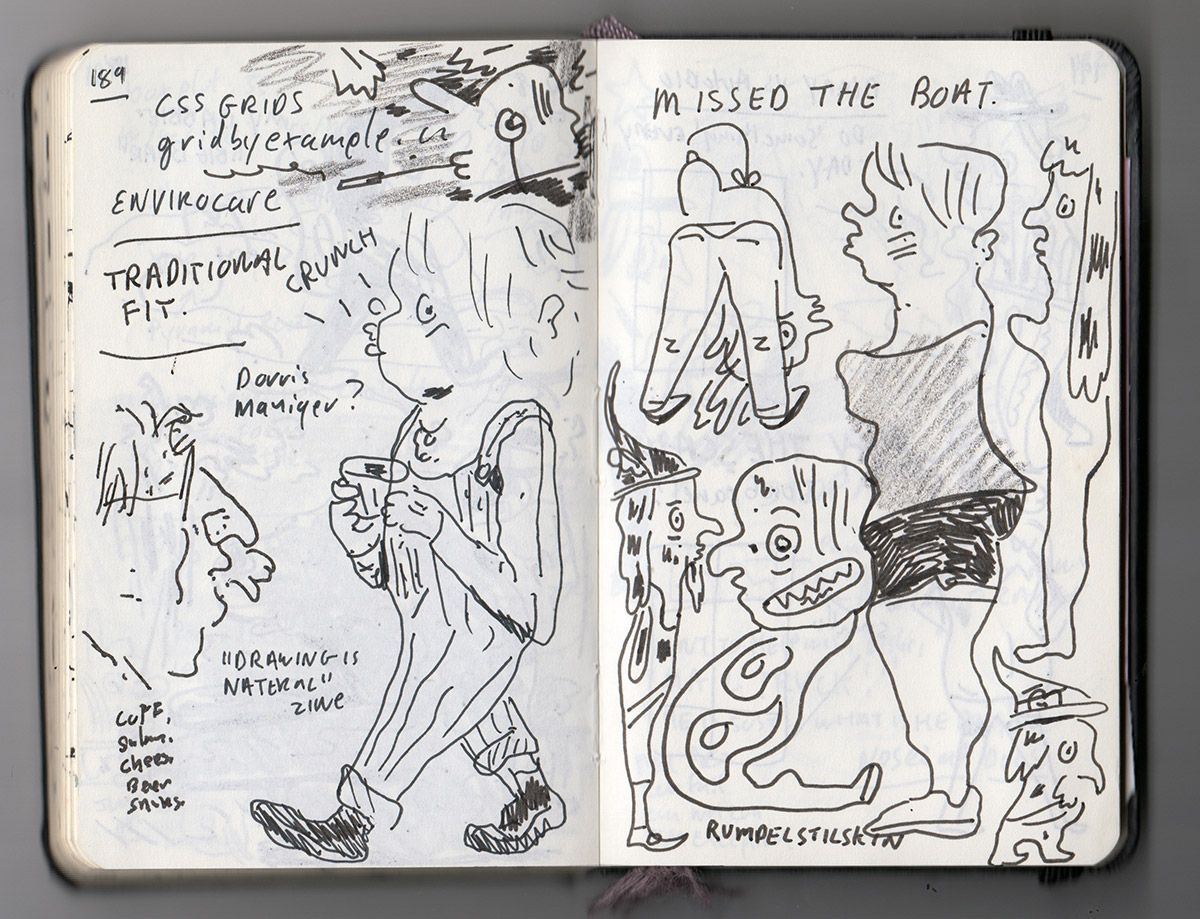 189
CSS GRIDS
gridbyexample.
ENVIROCARE
TRADITIONAL
FIT.
CRUNCH
Dorris
Maniger?
"DRAWING IS
NATERAL"
ZINE
Cheese
Beer
Snacks
MISSED THE BOAT.
RUMPELSTILSKIN